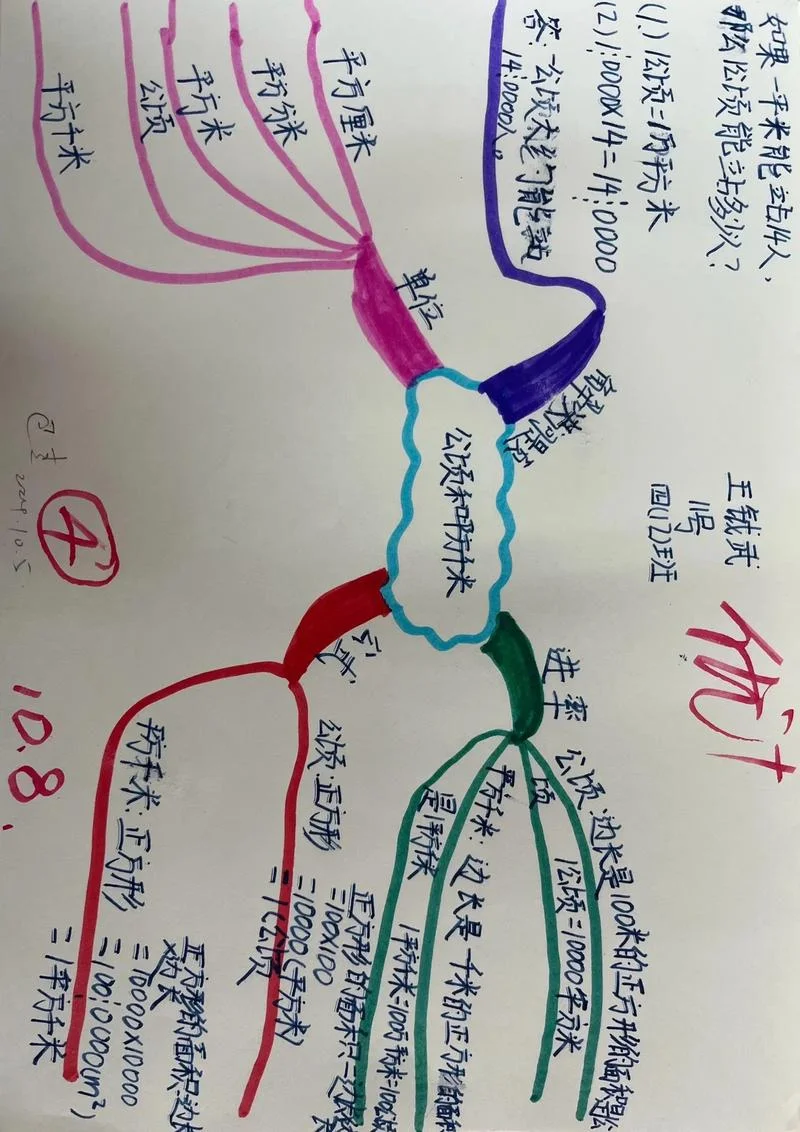 如果一平米能站14人，
那么1公顷能站多少人？
(1.)1公顷=1万平方米
(2)1;0000×14=14;0000
答：一公顷大约能站
14;0000人。
解决问题
单位
平方厘米
平方分米
平方米
公顷
平方千米
公顷和平方千米
王钺武
1号
四(12)班
优+
进率
公顷：边长是100米的正方形的面积是1公
顷
1公顷=10000平方米
平方千米：边长是一千米的正方形的面积
是1平方千米
1平方千米=100万平方米=100公顷
公式
公顷：正方形
正方形的面积=边长×边长
=100×100
=10000(平方米)
=1(公顷)
平方千米：正方形
正方形的面积：边长
×边长
=10000×10000
=100;0000(m²)
=1平方千米
4
10.8.